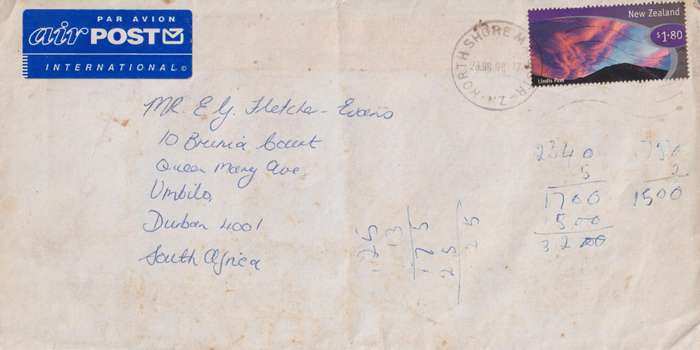 PAR AVION
air POST
INTERNATIONAL
New Zealand
$1.80
Lindis Pass
NORTH SHORE
Mr. E G. Fletcher-Evans
10 Brunia Court
Queen Mary Ave
Umbilo
Durban 4001
South Africa
2340
5
1700
500
3200
750
2
1500
125
13
175
25
25